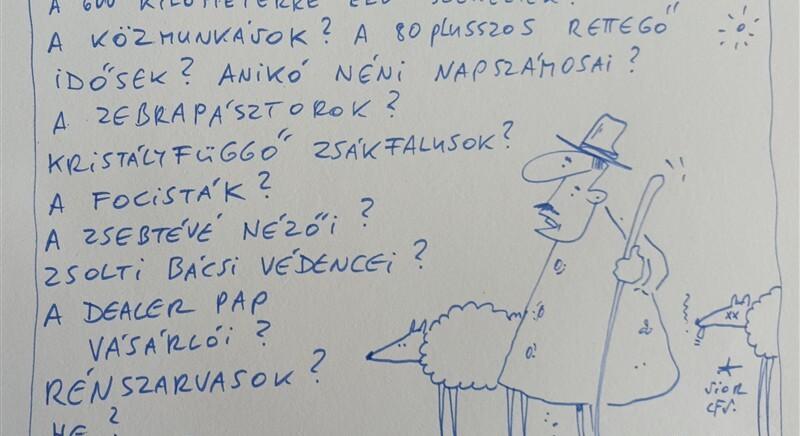 A KÖZMUNKÁSOK? A 80PLUSSZOS RETTEGŐ
IDŐSEK? ANIKÓ NÉNI NAPSZÁMOSAI?
A ZEBRAPÁSZTOROK?
KRISTÁLYFÜGGŐ ZSÁKFALUSOK?
A FOCISTÁK?
A ZSEBTÉVÉ NÉZŐI?
ZSOLTI BÁCSI VÉDENCEI?
A DEALER PAP
VÁSÁRLÓI?
RÉNSZARVASOK?
HE?